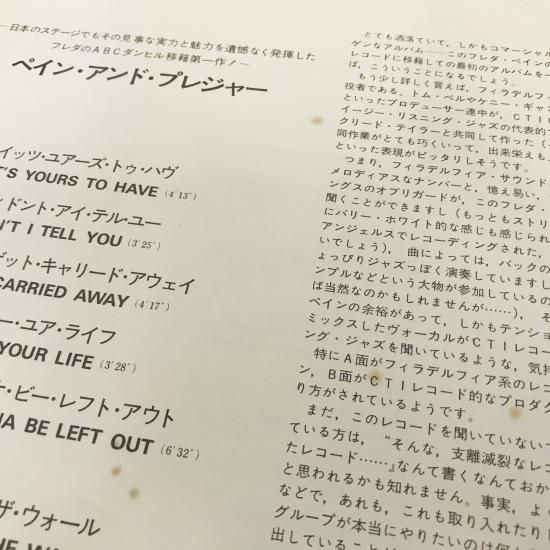 ～日本のステージでもその見事な実力と魅力を遺憾なく発揮した
フレダのＡＢＣダンヒル移籍第一作！～
ペイン・アンド・プレジャー
イッツ・ユアーズ・トゥ・ハヴ
T'S YOURS TO HAVE (4'13")
ドント・アイ・テル・ユー
N'T I TELL YOU (3'25")
ゲット・キャリード・アウェイ
CARRIED AWAY (4'17")
ー・ユア・ライフ
YOUR LIFE (3'28")
ナ・ビー・レフト・アウト
NA BE LEFT OUT (6'32")
ザ・ウォール
HE WA
とても洒落ていて、しかもコマーシャル
ゲンなアルバム──このフレダ・ペインの
レコードに移籍しての最初のアルバムを一
ば、こういうことになるでしょう。
もう少し詳しく言えば、フィラデルフィ
役者である。トム・ベルやケニー・ギャ
といったプロデューサー連中が、ＣＴＩ
イージー・リスニング・ジャズの代表的
クリード・テイラーと共同して作った（
同作業がとても巧くいって、出来栄えも
といった表現がピッタリしそうです。
つまり、フィラデルフィア・サウンド
メロディアスなナンバーと、憶え易い、
ングスのオブリガードが、このフレダ・
聞くことができますし（もっともストリ
にバリー・ホワイト的な感じも感じられ
アンジェルスでレコーディングされた、
いでしょう）、曲によっては、バックの
ょっぴりジャズっぽく演奏していますし
ンプルなどという大物が参加しているの
ば当然なのかもしれませんが……）、そ
ペインの余裕があって、しかもテンショ
ミックスしたヴォーカルがＣＴＩレコー
ング・ジャズを聞いているような、気持
特にＡ面がフィラデルフィア系のレコ
ン、Ｂ面がＣＴＩレコード的なプロダク
り方がされているようです。
まだ、このレコードを聞いていない
ている方は、“そんな、支離滅裂なレコ
たレコード……』なんて書くなんておか
と思われるかも知れません。事実、よ
などで、あれも、これも取り入れたり
グループが本当にやりたいのは何
出していること